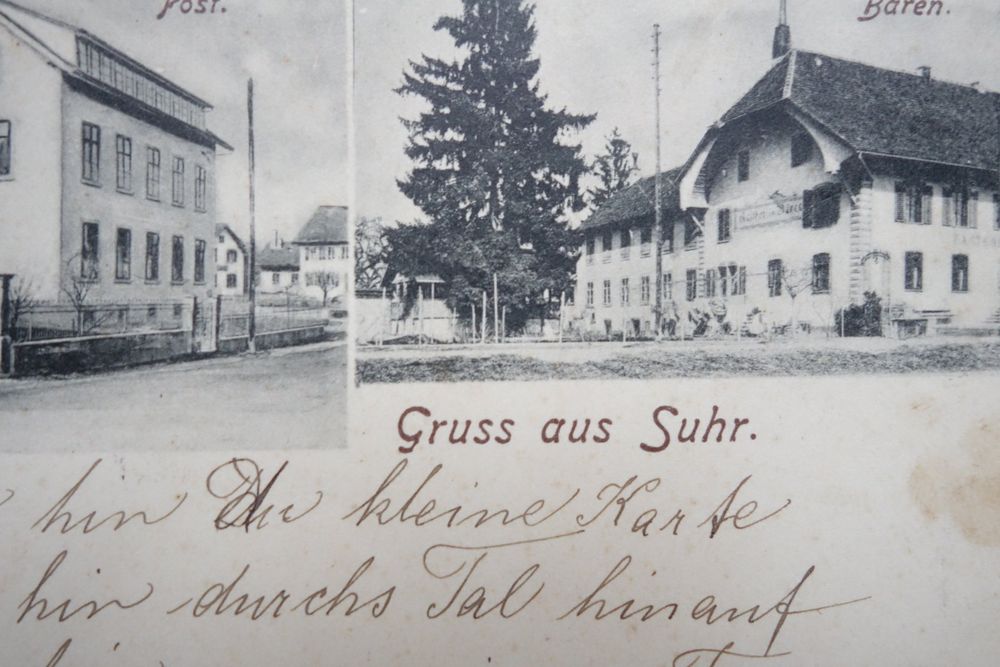 Post.
Bären.
Gruss aus Suhr.
hin Du kleine Karte
hin durchs Tal hinauf